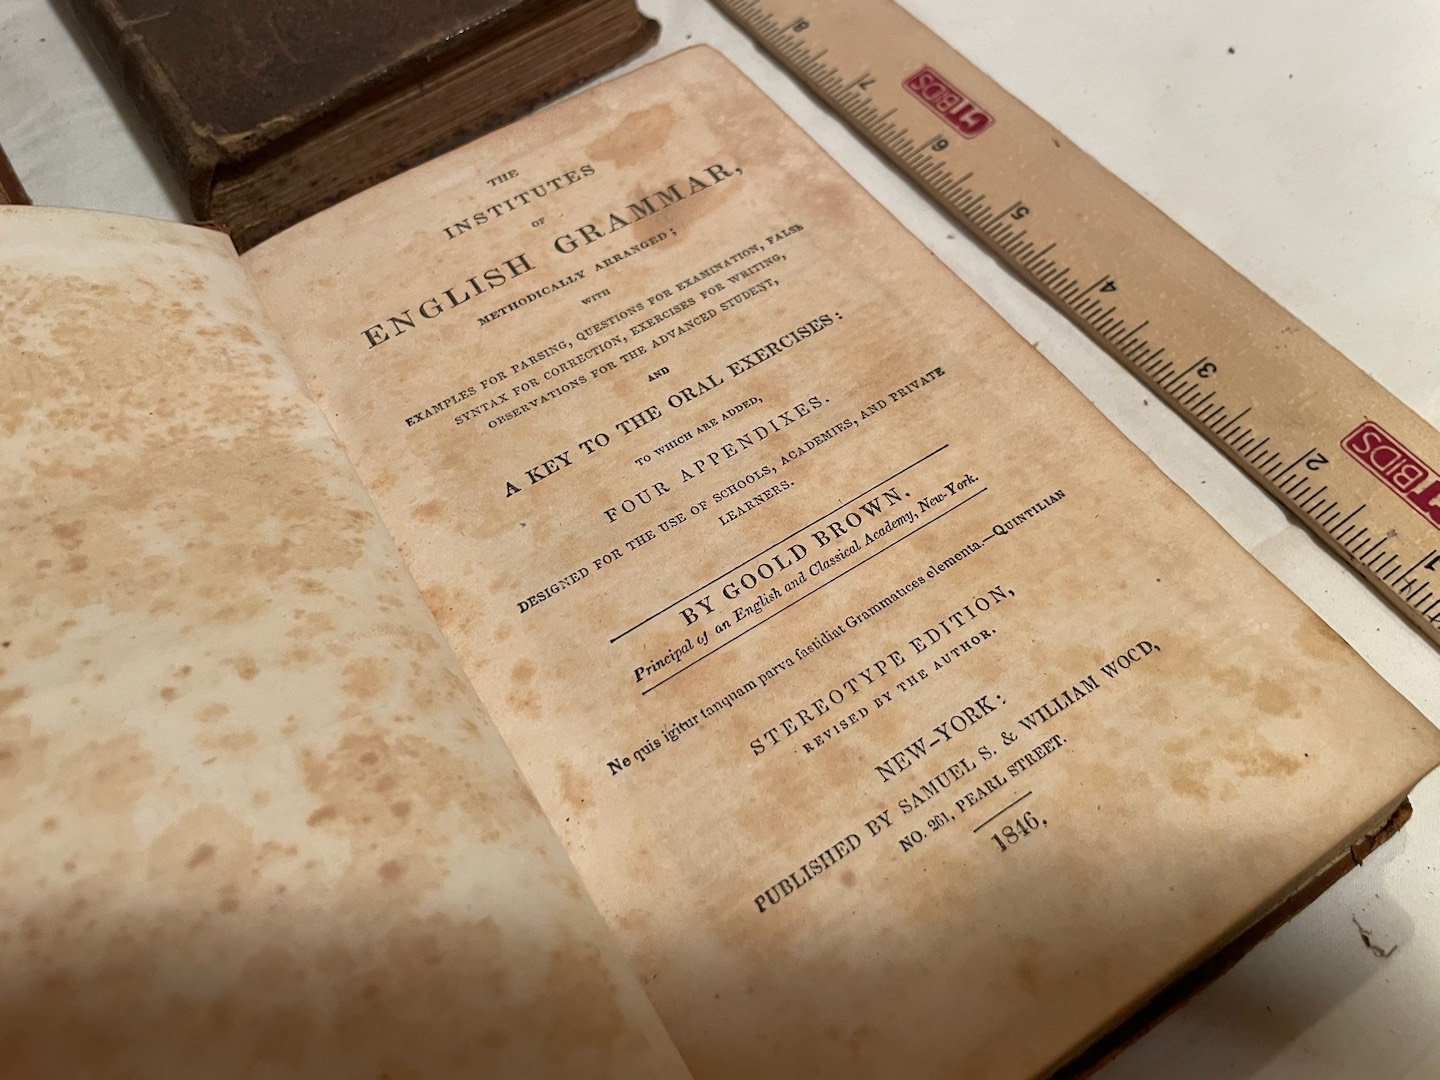 THE
INSTITUTES
OF
ENGLISH GRAMMAR,
METHODICALLY ARRANGED;
WITH
EXAMPLES FOR PARSING, QUESTIONS FOR EXAMINATION, FALSE
SYNTAX FOR CORRECTION, EXERCISES FOR WRITING,
OBSERVATIONS FOR THE ADVANCED STUDENT,
AND
A KEY TO THE ORAL EXERCISES:
TO WHICH ARE ADDED,
FOUR APPENDIXES.
DESIGNED FOR THE USE OF SCHOOLS, ACADEMIES, AND PRIVATE
LEARNERS.
BY GOOLD BROWN.
Principal of an English and Classical Academy, New-York.
Ne quis igitur tanquam parva fastidiat Grammatices elementa.—QUINTILIAN
STEREOTYPE EDITION,
REVISED BY THE AUTHOR.
NEW-YORK:
PUBLISHED BY SAMUEL S. & WILLIAM WOOD,
NO. 261, PEARL STREET.
1846,
8
7
BIDS
6
5
4
3
2
BIDS
1